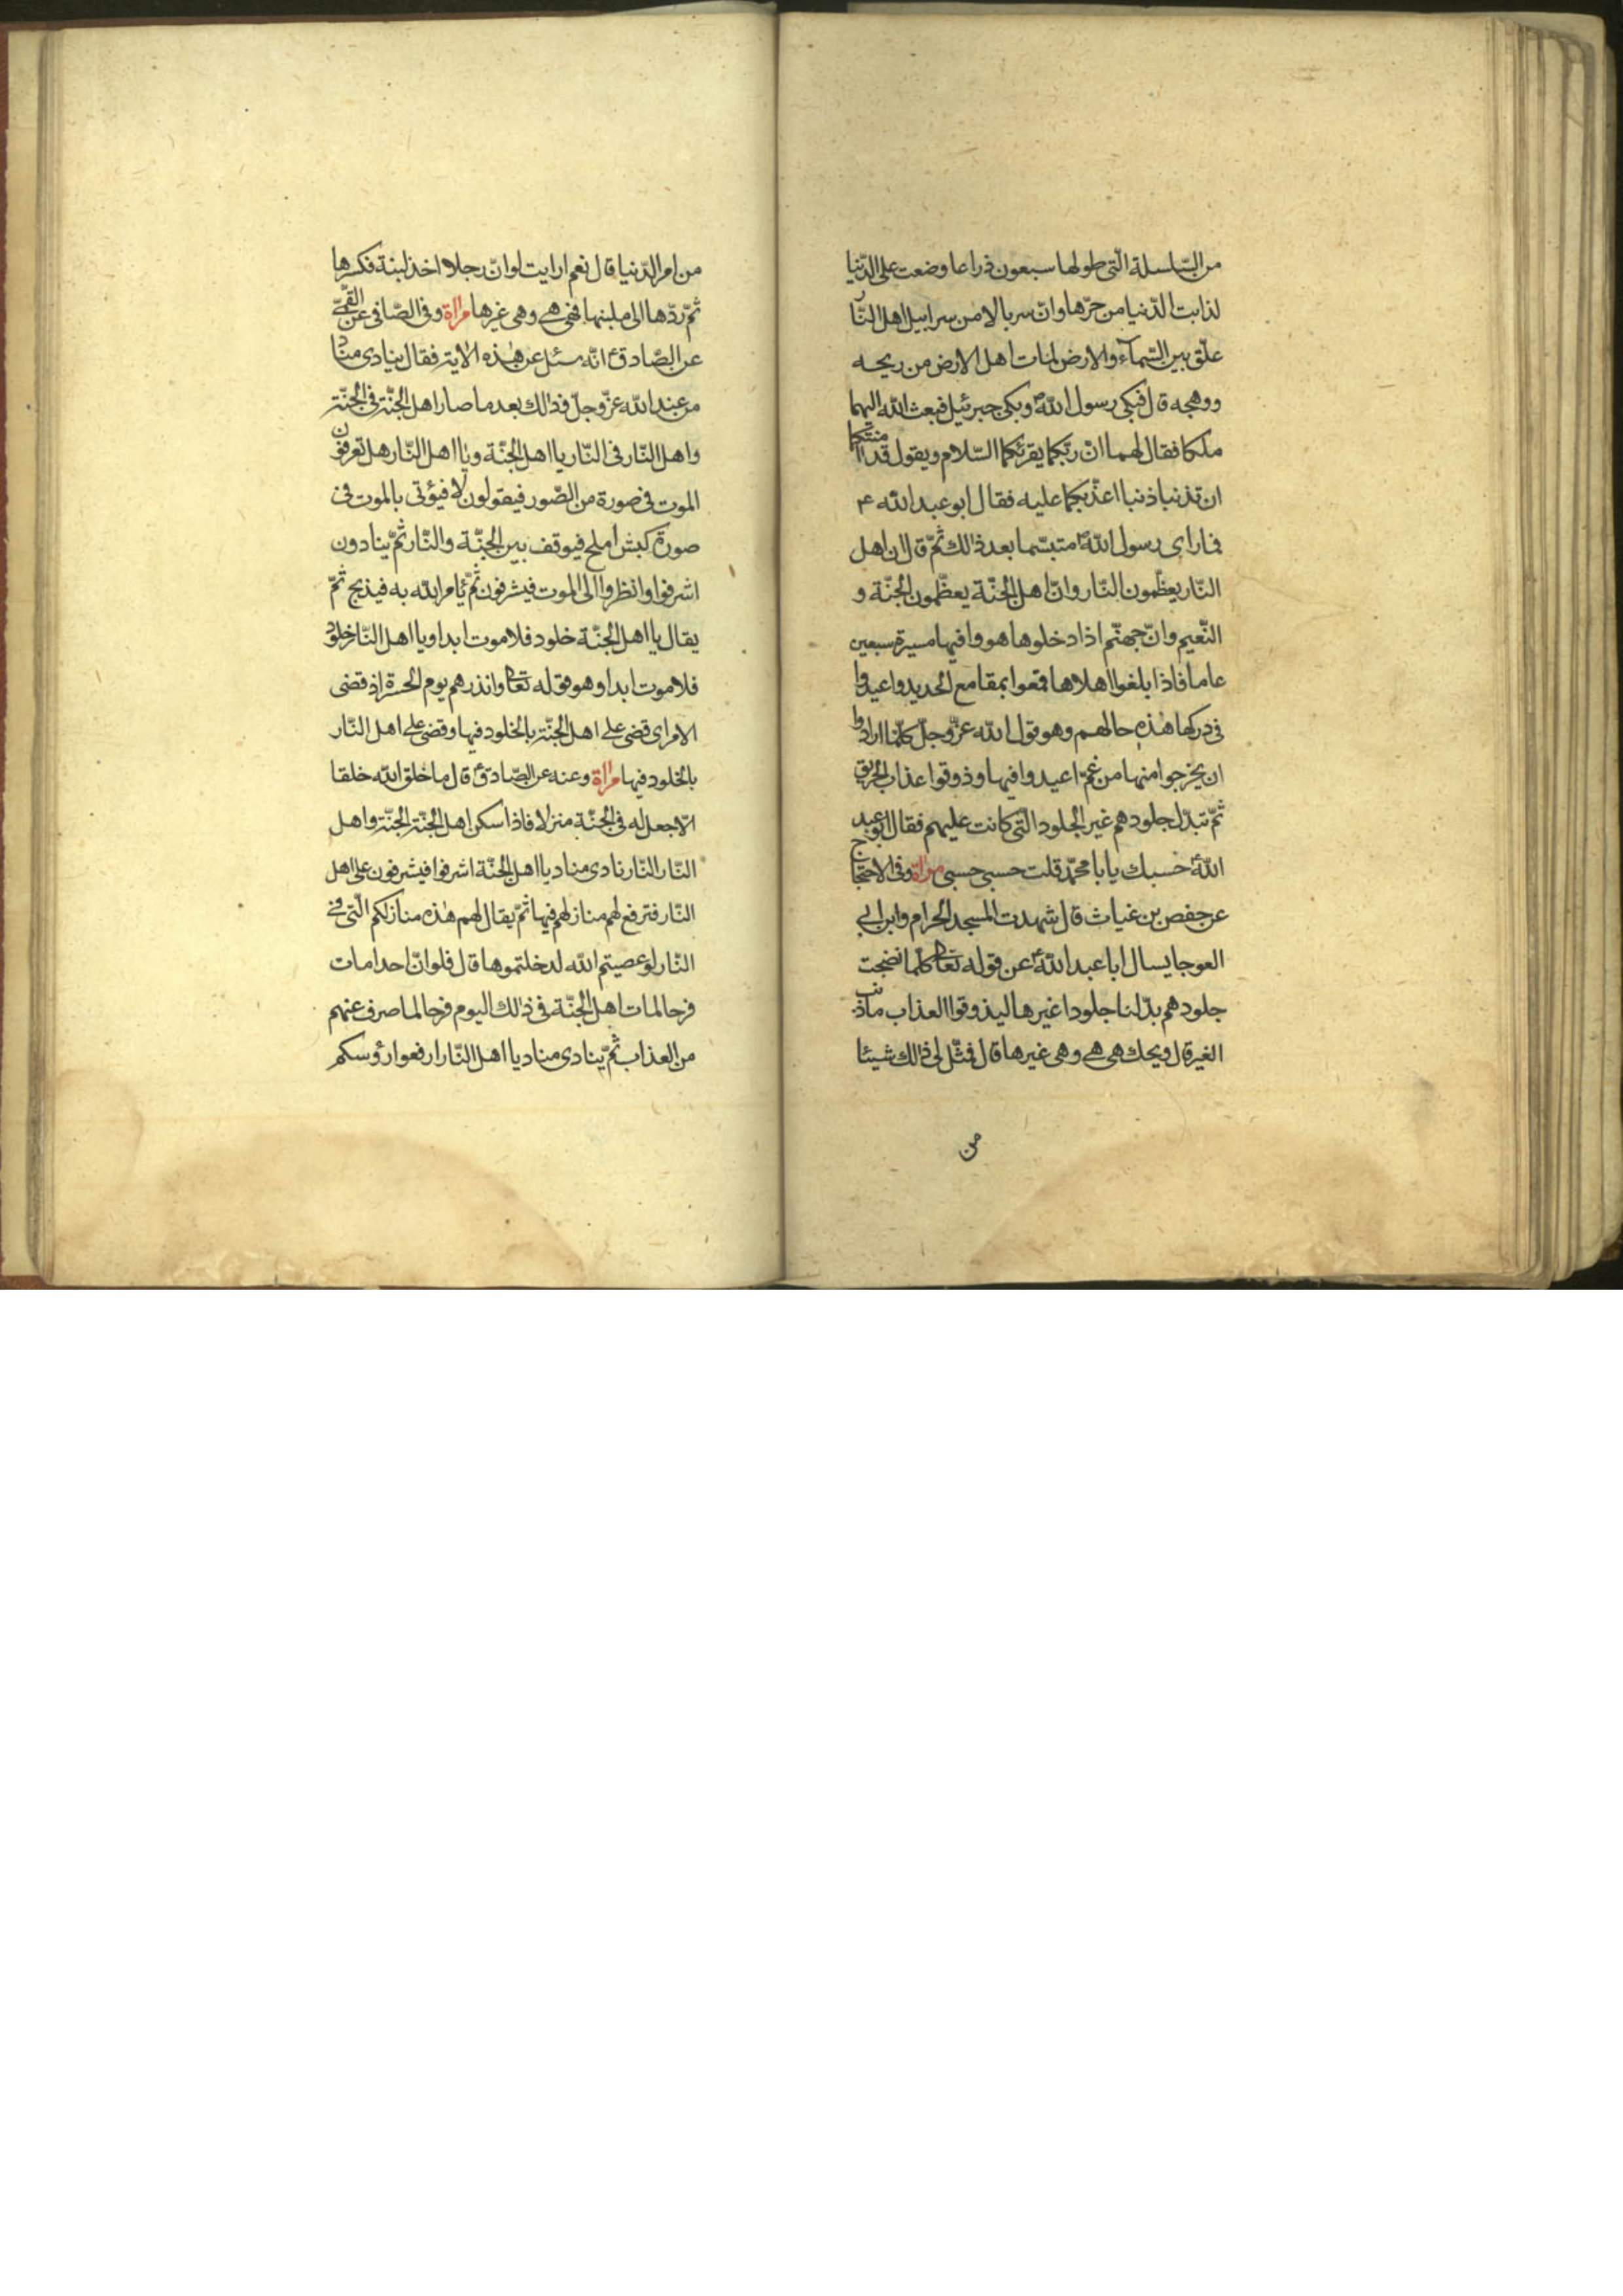 من السّلسلة الّتى طولها سبعون ذراعا وضعت على الدّنيا
لذابت الدّنيا من حرّها وانّ سربالا من سرابيل اهل النّار
علّق بين السّمآء والارض لمات اهل الارض من ريحه
ووهجه قال فبكى رسول اللّه ص وبكى جبرئيل فبعث اللّه اليهما
ملكا فقال لهما انّ ربّكما يقرئكما السّلام ويقول قد امنتكما
ان تذنبا ذنبا اعذّبكما عليه فقال ابو عبد اللّه ع
فما راى رسول اللّه ص متبسّما بعد ذالك ثمّ قال ان اهل
النّار يعظّمون النّار وانّ اهل الجنّة يعظّمون الجنّة و
النّعيم وانّ جهنّم اذا دخلوها هووا فيها مسيرة سبعين
عاما فاذا بلغوا اهلاها قمعوا بمقامع الحديد واعيدوا
فى دركها هذه حالهم وهو قول اللّه عزّ وجلّ كلّما ارادوا
ان يخرجوا منها من غمّ اعيدوا فيها وذوقوا عذاب الحريق
ثمّ تبدّل جلودهم غير الجلود الّتى كانت عليهم فقال ابو عبد
اللّه ع حسبك يا با محمّد قلت حسبى حسبى مراة وفى الاحتجاج
عن حفص بن غياث قال شهدت المسجد الحرام وابن ابى
العوجا يسال ابا عبد اللّه ع عن قوله تعالى كلّما نضجت
جلودهم بدّلنا جلودا غيرها ليذوقوا العذاب ما ذنب
الغير قال ويحك هى هى وهى غيرها قال فمثّل لى ذالك شيئا
من
من امر الدّنيا قال نعم ارايت لو انّ رجلا اخذ لبنة فكسرها
ثمّ ردّها الى ملبنها فهى هى وهى غيرها مراة وفى الصّافى عن القمّى
عن الصّادق ع انّه سئل عن هذه الاية فقال ينادى مناد
من عند اللّه عزّ وجلّ وذالك بعد ما صار اهل الجنّة فى الجنّة
واهل النّار فى النّار يا اهل الجنّة ويا اهل النّار هل تعرفون
الموت فى صورة من الصّور فيقولون لا فيؤتى بالموت فى
صورة كبش املح فيوقف بين الجنّة والنّار ثمّ ينادون
اشرفوا وانظروا الى الموت فيشرفون ثمّ يامر اللّه به فيذبح ثمّ
يقال يا اهل الجنّة خلود فلا موت ابدا ويا اهل النّار خلود
فلا موت ابدا وهو قوله تعالى وانذرهم يوم الحسرة اذ قضى
الامر اى قضى على اهل الجنّة بالخلود فيها وقضى على اهل النّار
بالخلود فيها مراة وعنه عن الصّادق ع قال ما خلق اللّه خلقا
الّا جعل له فى الجنّة منزلا فاذا سكن اهل الجنّة الجنّة واهل
النّار النّار نادى مناد يا اهل الجنّة اشرفوا فيشرفون على اهل
النّار فترفع لهم منازلهم فيها ثمّ يقال لهم هذه منازلكم الّتى فى
النّار لو عصيتم اللّه لدخلتموها قال فلو انّ احدا مات
فرحا لمات اهل الجنّة فى ذالك اليوم فرحا لما صرف عنهم
من العذاب ثمّ ينادى مناد يا اهل النّار ارفعوا رؤسكم